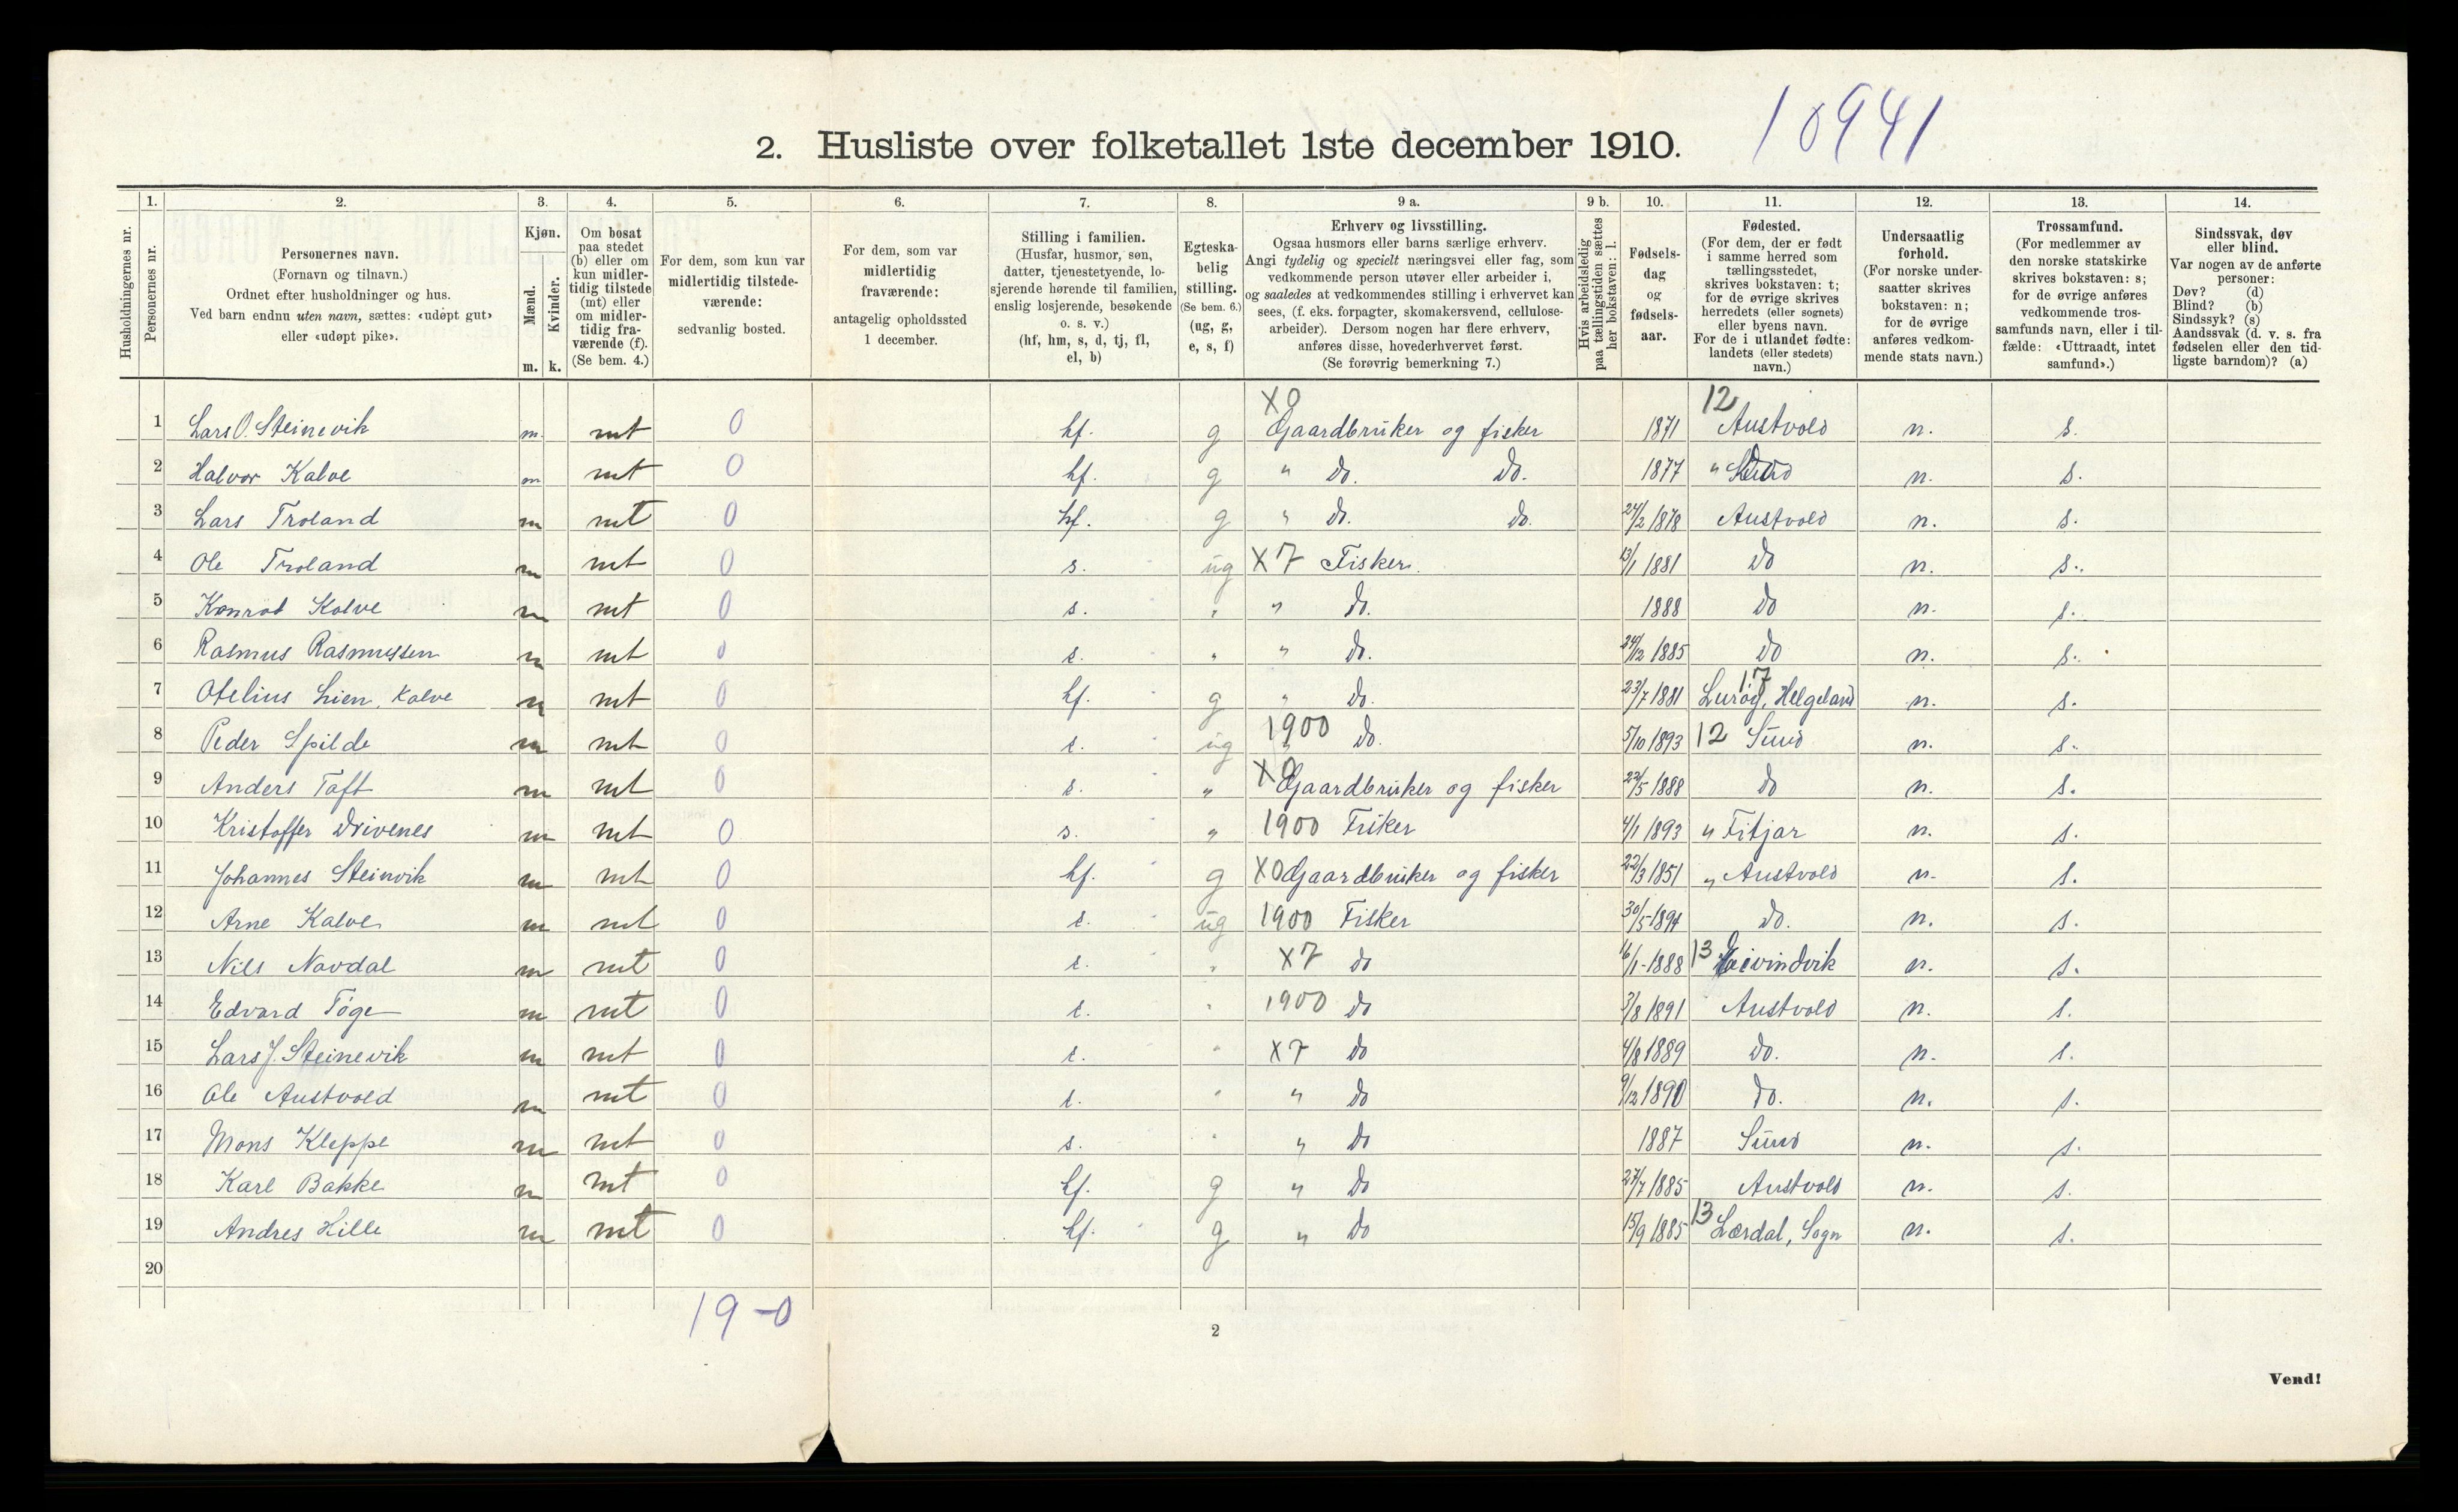 10941
2. Husliste over folketallet 1ste december 1910.
Husholdningernes nr.
1. Personernes nr.
2. Personernes navn.
(Fornavn og tilnavn.)
Ordnet efter husholdninger og hus.
Ved barn endnu uten navn, sættes: «udøpt gut»
eller «udøpt pike».
3. Kjøn.
Mænd. Kvinder.
m. k.
4. Om bosat
paa stedet
(b) eller om
kun midler-
tidig tilstede
(mt) eller
om midler-
tidig fra-
værende (f).
(Se bem. 4.)
5. For dem, som kun var
midlertidig tilstede-
værende:
sedvanlig bosted.
6. For dem, som var
midlertidig
fraværende:
antagelig opholdssted
1 december.
7. Stilling i familien.
(Husfar, husmor, søn,
datter, tjenestetyende, lo-
sjerende hørende til familien,
enslig losjerende, besøkende
o. s. v.)
(hf, hm, s, d, tj, fl,
el, b)
8. Egteska-
belig
stilling.
(Se bem. 6.)
(ug, g,
e, s, f)
9 a. Erhverv og livsstilling.
Ogsaa husmors eller barns særlige erhverv.
Angi tydelig og specielt næringsvei eller fag, som
vedkommende person utøver eller arbeider i,
og saaledes at vedkommendes stilling i erhvervet kan
sees, (f. eks. forpagter, skomakersvend, cellulose-
arbeider). Dersom nogen har flere erhverv,
anføres disse, hovederhvervet først.
(Se forøvrig bemerkning 7.)
9 b. Hvis arbeidsledig
paa tællingstiden sættes
her bokstaven: l.
10. Fødsels-
dag
og
fødsels-
aar.
11. Fødested.
(For dem, der er født
i samme herred som
tællingsstedet,
skrives bokstaven: t;
for de øvrige skrives
herredets (eller sognets)
eller byens navn.
For de i utlandet fødte:
landets (eller stedets)
navn.)
12. Undersaatlig
forhold.
(For norske under-
saatter skrives
bokstaven: n;
for de øvrige
anføres vedkom-
mende stats navn.)
13. Trossamfund.
(For medlemmer av
den norske statskirke
skrives bokstaven: s;
for de øvrige anføres
vedkommende tros-
samfunds navn, eller i til-
fælde: «Uttraadt, intet
samfund».)
14. Sindssvak, døv
eller blind.
Var nogen av de anførte
personer:
Døv? (d)
Blind? (b)
Sindssyk? (s)
Aandssvak (d. v. s. fra
fødselen eller den tid-
ligste barndom)? (a)
X0 12
1 Lars O. Steinevik m. mt 0 hf. g Gaardbruker og fisker 1871 Austvold n. s.
2 Halvor Kalve m mt 0 hf. g " do. do. 1877 " n. s.
3 Lars Troland m mt 0 hf. g " do. do. 24/2 1878 Austvold n. s.
4 Ole Troland m mt 0 s. ug X7 Fisker. 13/1 1881 do n. s.
5 Konrad Kalve m mt 0 s. " " do. 1888 do n. s.
6 Rasmus Rasmussen m mt 0 s. " " do. 24/12 1885 do n. s.
7 Otelius Lien, Kalve m mt 0 hf. g " do. 23/7 1881 17 Lurøy, Helgeland n. s.
8 Peder Spilde m mt 0 s. ug 1900 " do. 5/10 1893 12 Sund n. s.
9 Anders Toft m mt 0 s. " X0 Gaardbruker og fisker 22/5 1888 do n. s.
10 Kristoffer Drivenes m mt 0 s. " 1900 Fisker 4/1 1893 " Fitjar n. s.
11 Johannes Steinvik m mt 0 hf. g X0 Gaardbruker og fisker 22/3 1851 " Austvold n. s.
12 Arne Kalve m mt 0 s. ug 1900 Fisker 30/5-1894 do. n. s.
13 Nils Navdal m mt 0 s. " X7 do 16/1-1888 13 Eivindvik n. s.
14 Edvard Tøge m mt 0 s. " 1900 do 3/8 1891 Austvold n. s.
15 Lars J. Steinevik m mt 0 s. " X7 do 4/8 1889 do. n. s.
16 Ole Austvold m mt 0 s. " " do 9/12 1890 do. n. s.
17 Mons Kleppe m mt 0 s. " " do 1887 Sund n. s.
18 Karl Bakke m mt 0 hf. g " do 27/7 1885 Austvold n. s.
19 Andres Hille m mt 0 hf. g " do 15/9 1885 13 Lærdal, Sogn n. s.
20
19-0
2
Vend!